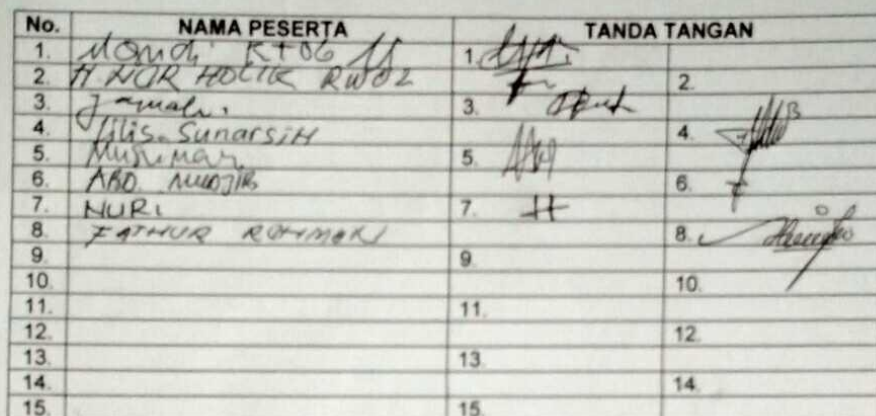 No. NAMA PESERTA TANDA TANGAN
1. Mondi RT06 1.
2. H NUR HOLIK RW02 2.
3. Jamali. 3.
4. Lilis Sunarsih 4.
5. 5.
6. ABD. MUDJIB 6.
7. NURI 7.
8. FATHUR ROHMAN 8.
9. 9.
10. 10.
11. 11.
12. 12.
13. 13.
14. 14.
15. 15.